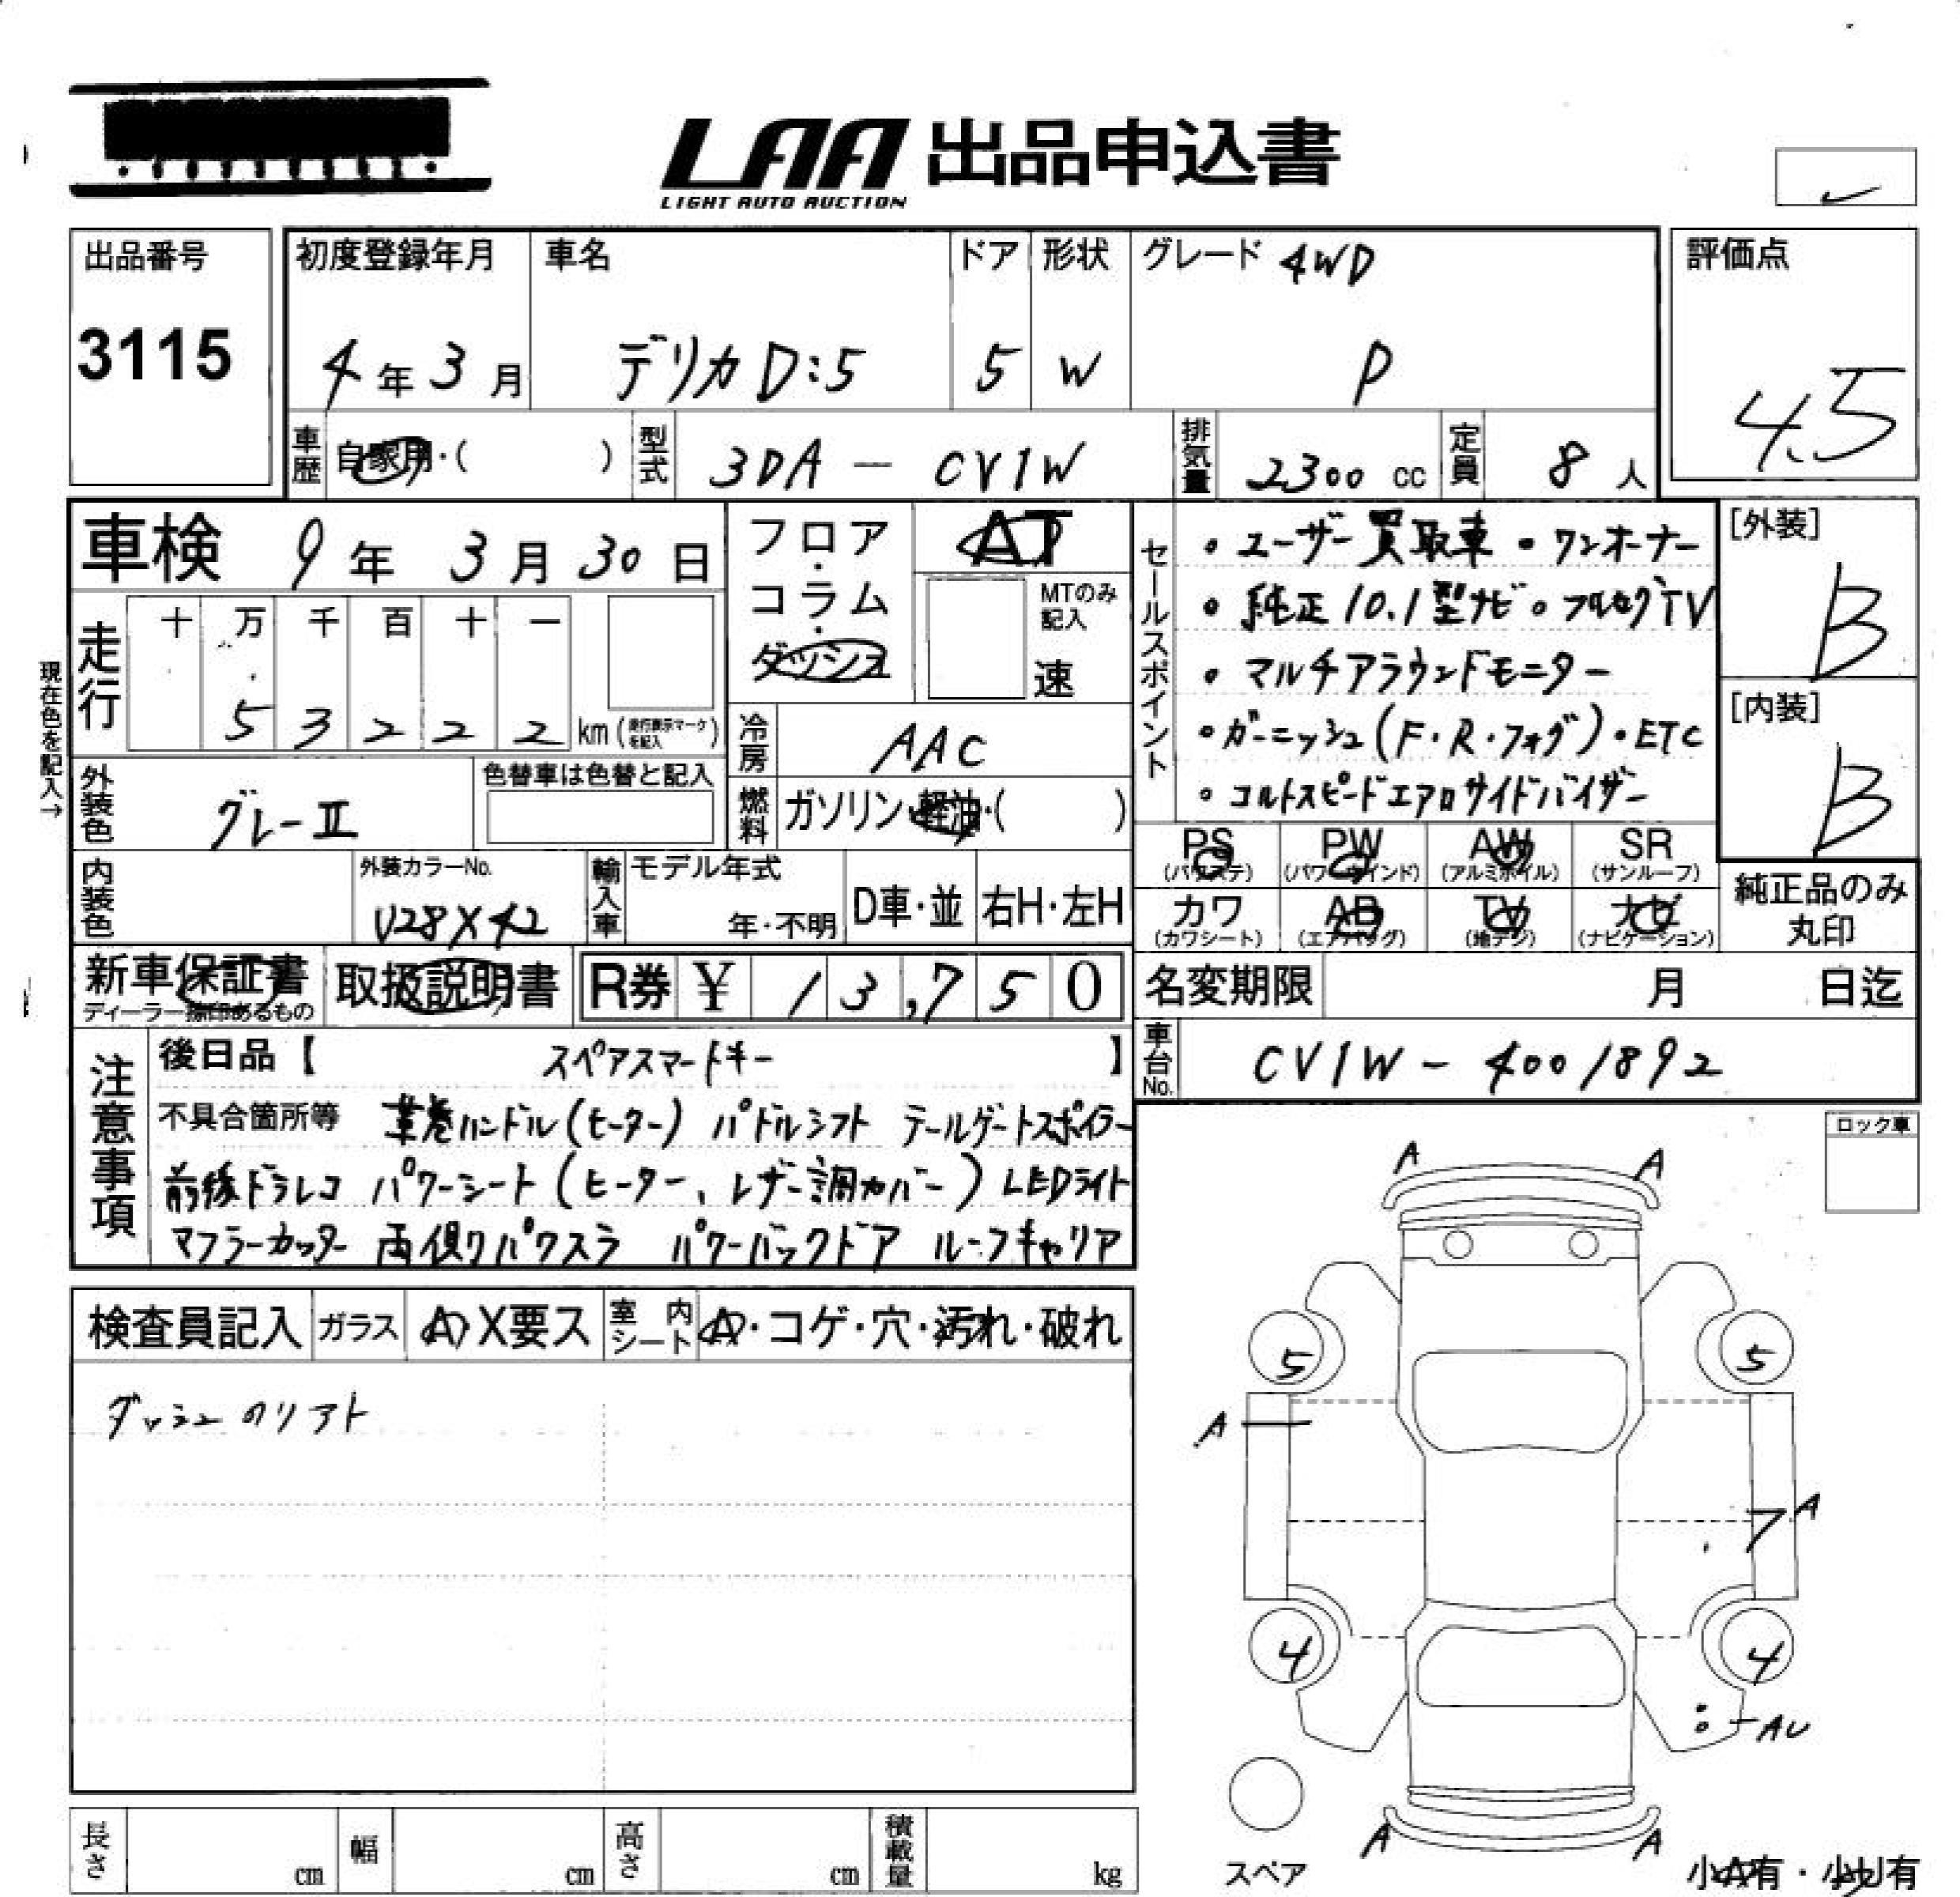 LAA 出品申込書
LIGHT AUTO AUCTION
出品番号
3115
初度登録年月
4年3月
車名
デリカD:5
ドア
5
形状
W
グレード 4WD
P
評価点
4.5
車歴 自家用・( )
型式 3DA - CV1W
排気量 2300 cc
定員 8 人
車検 9年 3月 30日
走行
十 万 千 百 十 一
5 3 2 2 2 km(走行表示マークを記入)
現在色を記入→
外装色 グレーII
色替車は色替と記入
内装色
外装カラーNo.
U28X42
フロア・コラム・ダッシュ
AT
MTのみ記入
速
冷房 AAC
燃料 ガソリン・軽油・( )
輸入車 モデル年式
年・不明
D車・並 右H・左H
セールスポイント
・ユーザー買取車 ・ワンオーナー
・純正10.1型ナビ・フルセグTV
・マルチアラウンドモニター
・ガーニッシュ(F・R・フォグ)・ETC
・コルトスピードエアロサイドバイザー
[外装]
B
[内装]
B
PS (パワステ)
PW (パワーウインド)
AW (アルミホイル)
SR (サンルーフ)
カワ (カワシート)
AB (エアバッグ)
TV (地デジ)
ナビ (ナビゲーション)
純正品のみ丸印
新車保証書
ディーラー捺印あるもの
取扱説明書
R券 ¥ 13,750
名変期限 月 日迄
車台No. CV1W - 4001892
注意事項
後日品【 スペアスマートキー 】
不具合箇所等 革巻ハンドル(ヒーター) パドルシフト テールゲートスポイラー
前後ドラレコ パワーシート(ヒーター、レザー調カバー) LEDライト
マフラーカッター 両側パワスラ パワーバックドア ルーフキャリア
検査員記入 ガラス A・X要ス 室内シート A・コゲ・穴・汚れ・破れ
ロック車
A A
5 5
A
A
4 4
AU
A A
スペア
小A有・小U有
長さ cm 幅 cm 高さ cm 積載量 kg